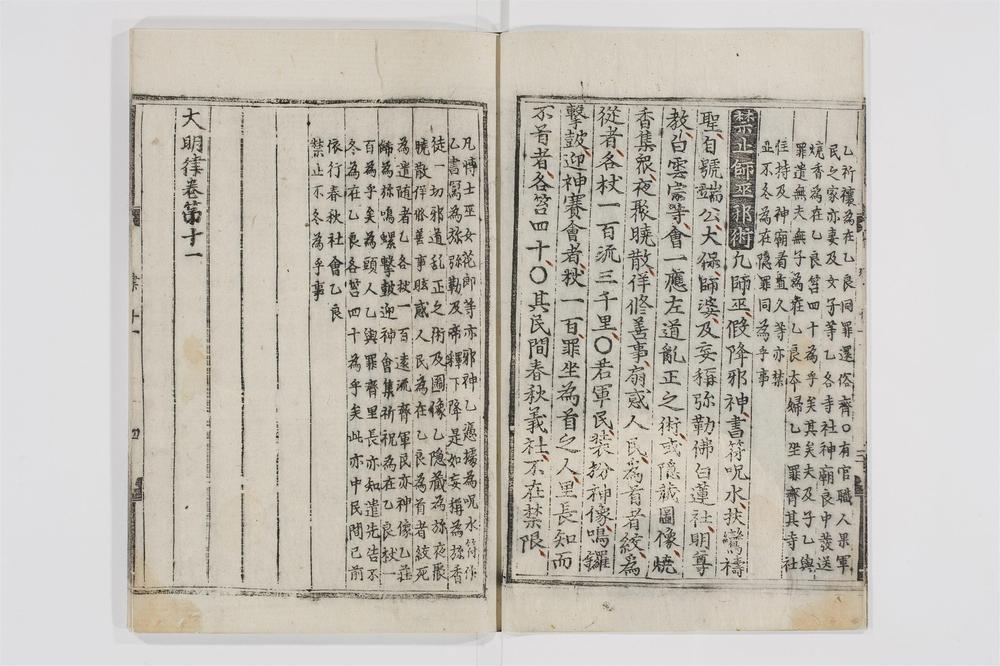 乙祈禳為在乙良同罪遣俗齊○有官職人果軍
民之家亦妻及女子等乙各寺社神廟良中發送
燒香為在乙良笞四十為乎矣其矣夫及子乙與
罪遣無夫無子為在乙良本婦乙坐罪齊其寺社
住持及神廟看直人等亦禁
止不冬為在隱罪同為乎事
禁止師巫邪術 凡師巫假降邪神書符呪水扶鸞禱
聖自號端公太保師婆及妄稱弥勒佛白蓮社明尊
教白雲宗等會一應左道亂正之術或隱藏圖像燒
香集衆夜聚曉散佯修善事扇惑人民為首者絞為
從者各杖一百流三千里○若軍民裝扮神像鳴鑼
擊鼓迎神賽會者杖一百罪坐為首之人里長知而
不首者各笞四十○其民間春秋義社不在禁限
凡博士巫女花郎等亦邪神乙憑據為呪水符作
乙書寫為旀弥勒及帝釋下降是如妄稱為旀香
徒一切邪道亂正之術及圖像乙隱藏為旀夜聚
曉散佯修善事眩惑人民為在乙良為首者絞死
為遣隨者乙各杖一百遠流齊軍民亦神像乙莊
餙為旀鳴螺擊鼓迎神會集祈祝為在乙良杖一
百為乎矣為頭人乙與罪齊里長亦知遣先告不
冬為在乙良各笞四十為乎矣此亦中民間已前
依行春秋社會乙良
禁止不冬為乎事
大明律卷第十一